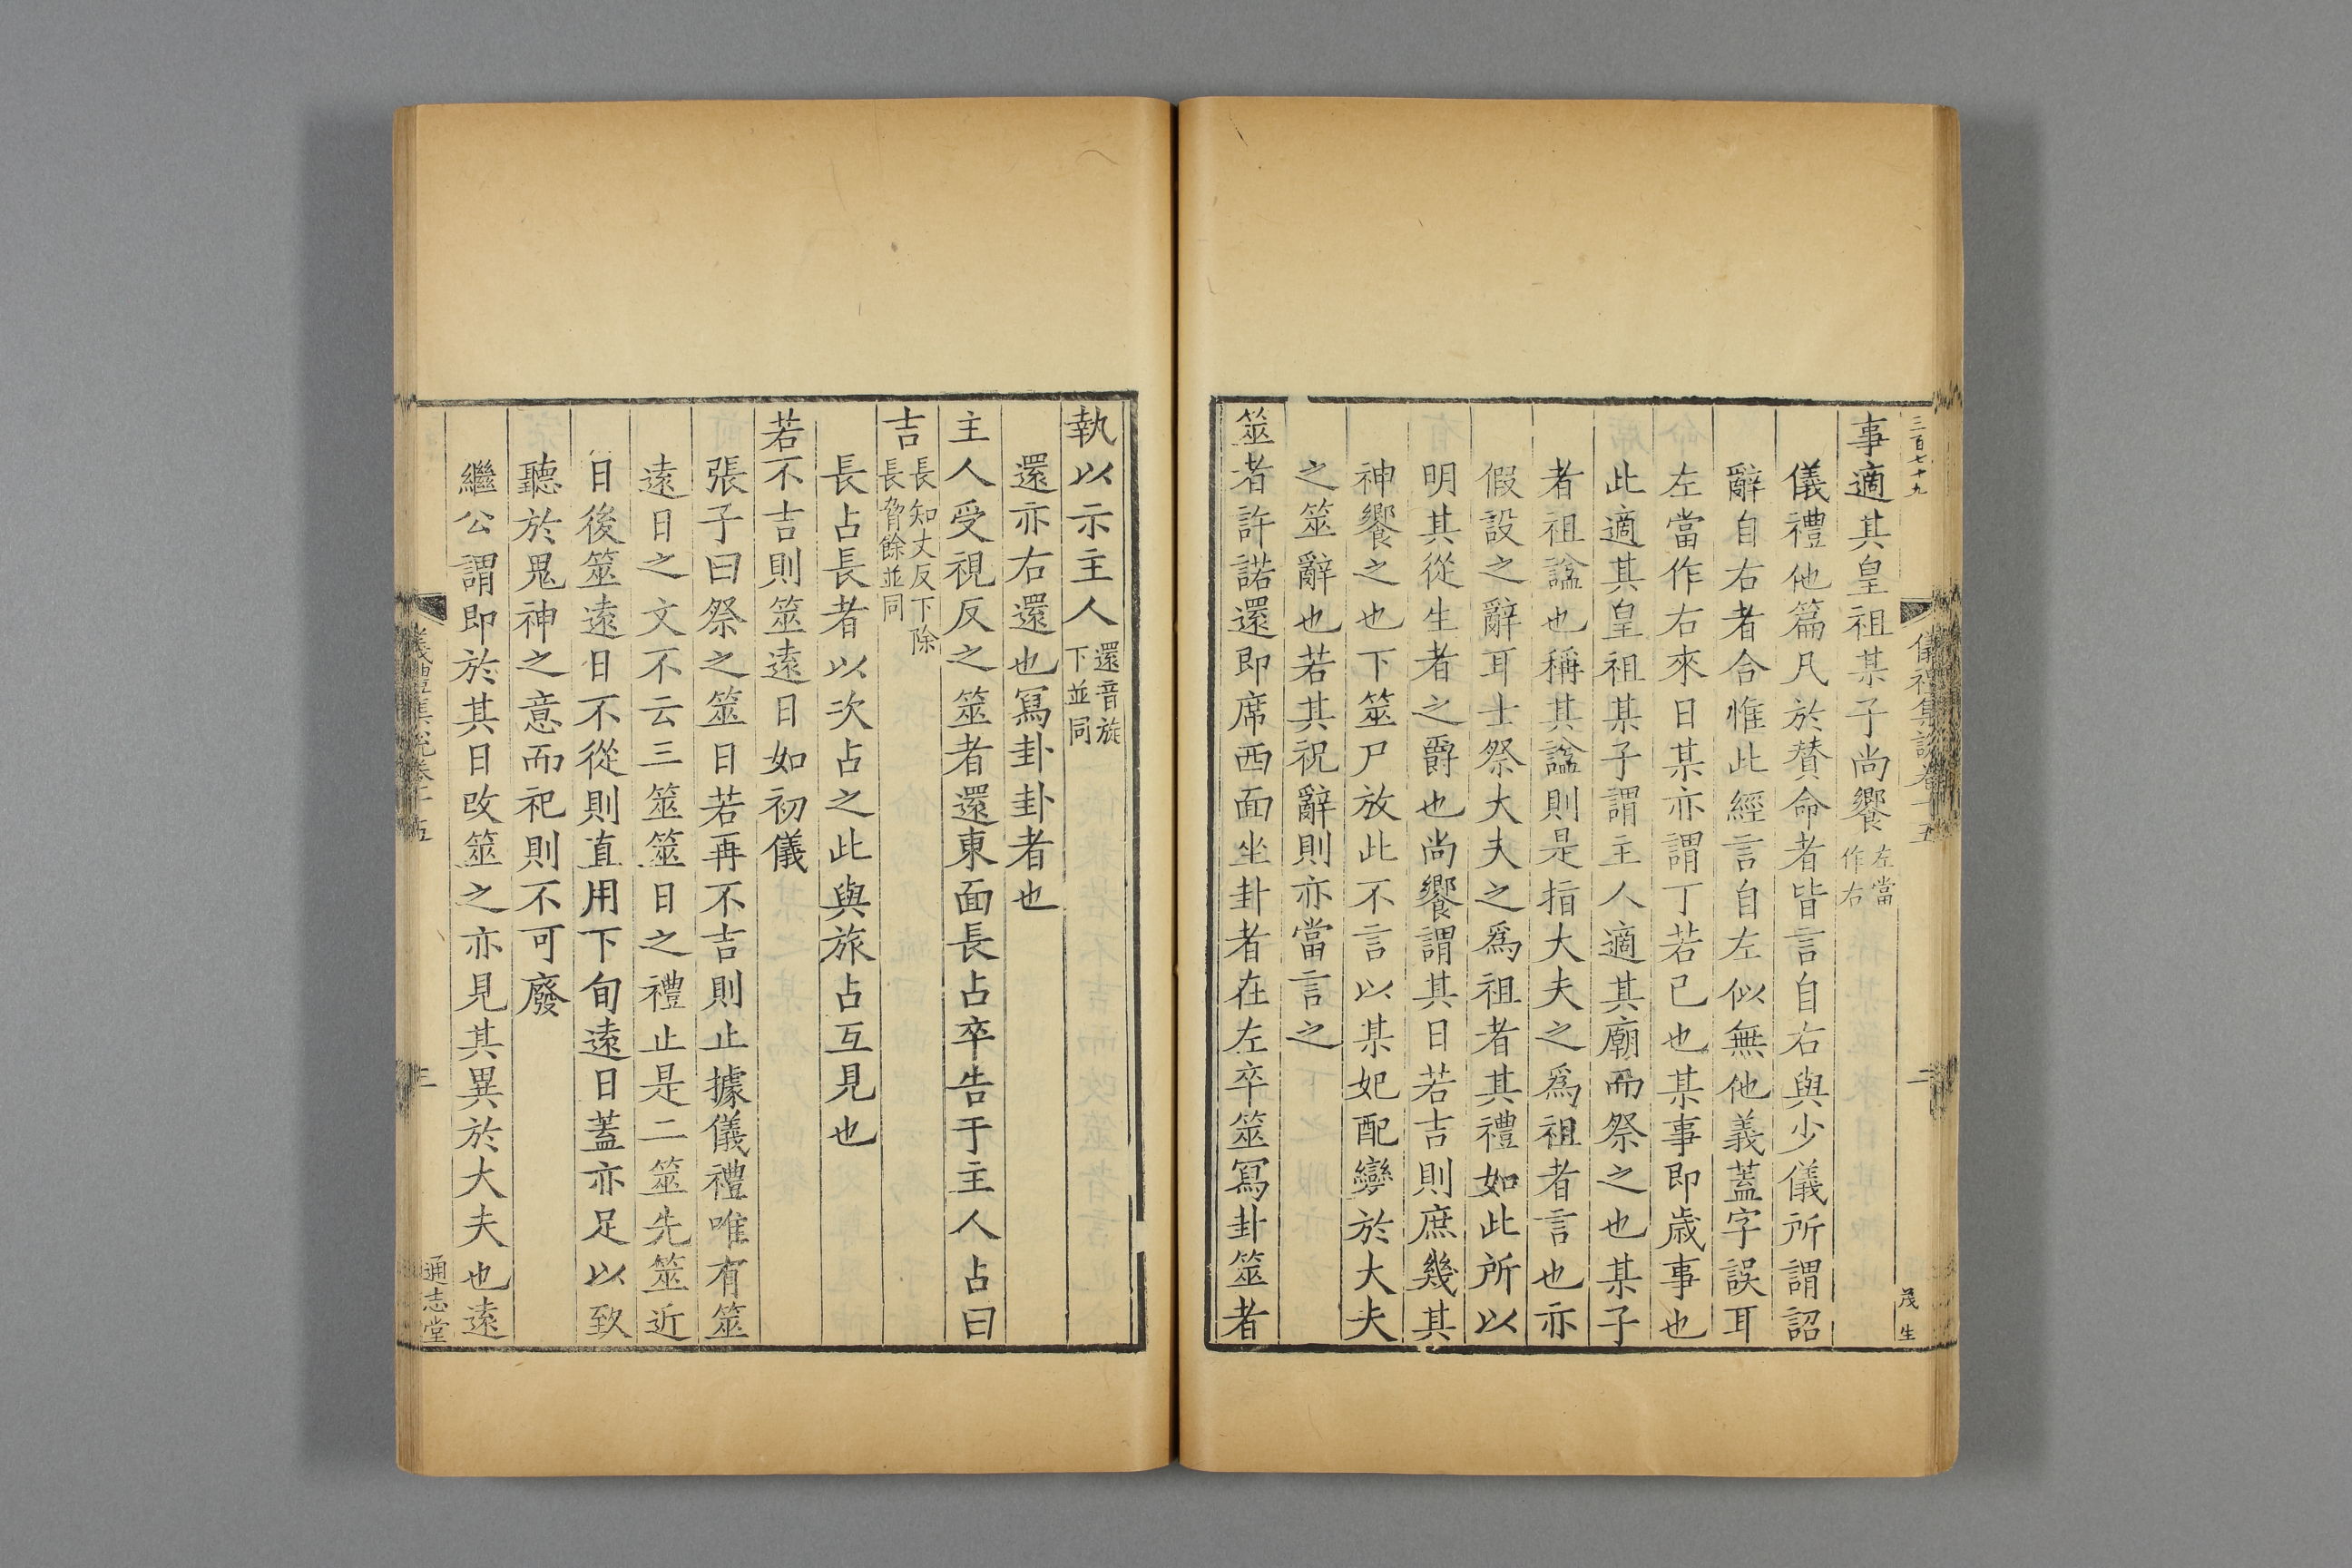 三百七十九
儀禮集說卷十五
二
茂生
事適其皇祖某子尚饗左當作右
儀禮他篇凡於賛命者皆言自右與少儀所謂詔
辭自右者合惟此經言自左似無他義蓋字誤耳
左當作右來日某亦謂丁若已也某事即歲事也
此適其皇祖某子謂主人適其廟而祭之也某子
者祖諡也稱其諡則是指大夫之爲祖者言也亦
假設之辭耳士祭大夫之爲祖者其禮如此所以
明其從生者之爵也尚饗謂其日若吉則庶幾其
神饗之也下筮尸放此不言以某妃配變於大夫
之筮辭也若其祝辭則亦當言之
筮者許諾還即席西面坐卦者在左卒筮寫卦筮者
執以示主人還音旋下並同
還亦右還也寫卦卦者也
主人受視反之筮者還東面長占卒告于主人占曰
吉長知丈反下除長脅餘並同
長占長者以次占之此與旅占互見也
若不吉則筮遠日如初儀
張子曰祭之筮日若再不吉則止據儀禮唯有筮
遠日之文不云三筮筮日之禮止是二筮先筮近
日後筮遠日不從則直用下旬遠日蓋亦足以致
聽於鬼神之意而祀則不可廢
繼公謂即於其日改筮之亦見其異於大夫也遠
儀禮集說卷十五
三
通志堂